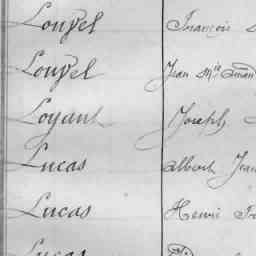 Louvel François
Louvel Jean Mie Amand
Loyant Joseph
Lucas Albert Jean
Lucas Henri
Lucas